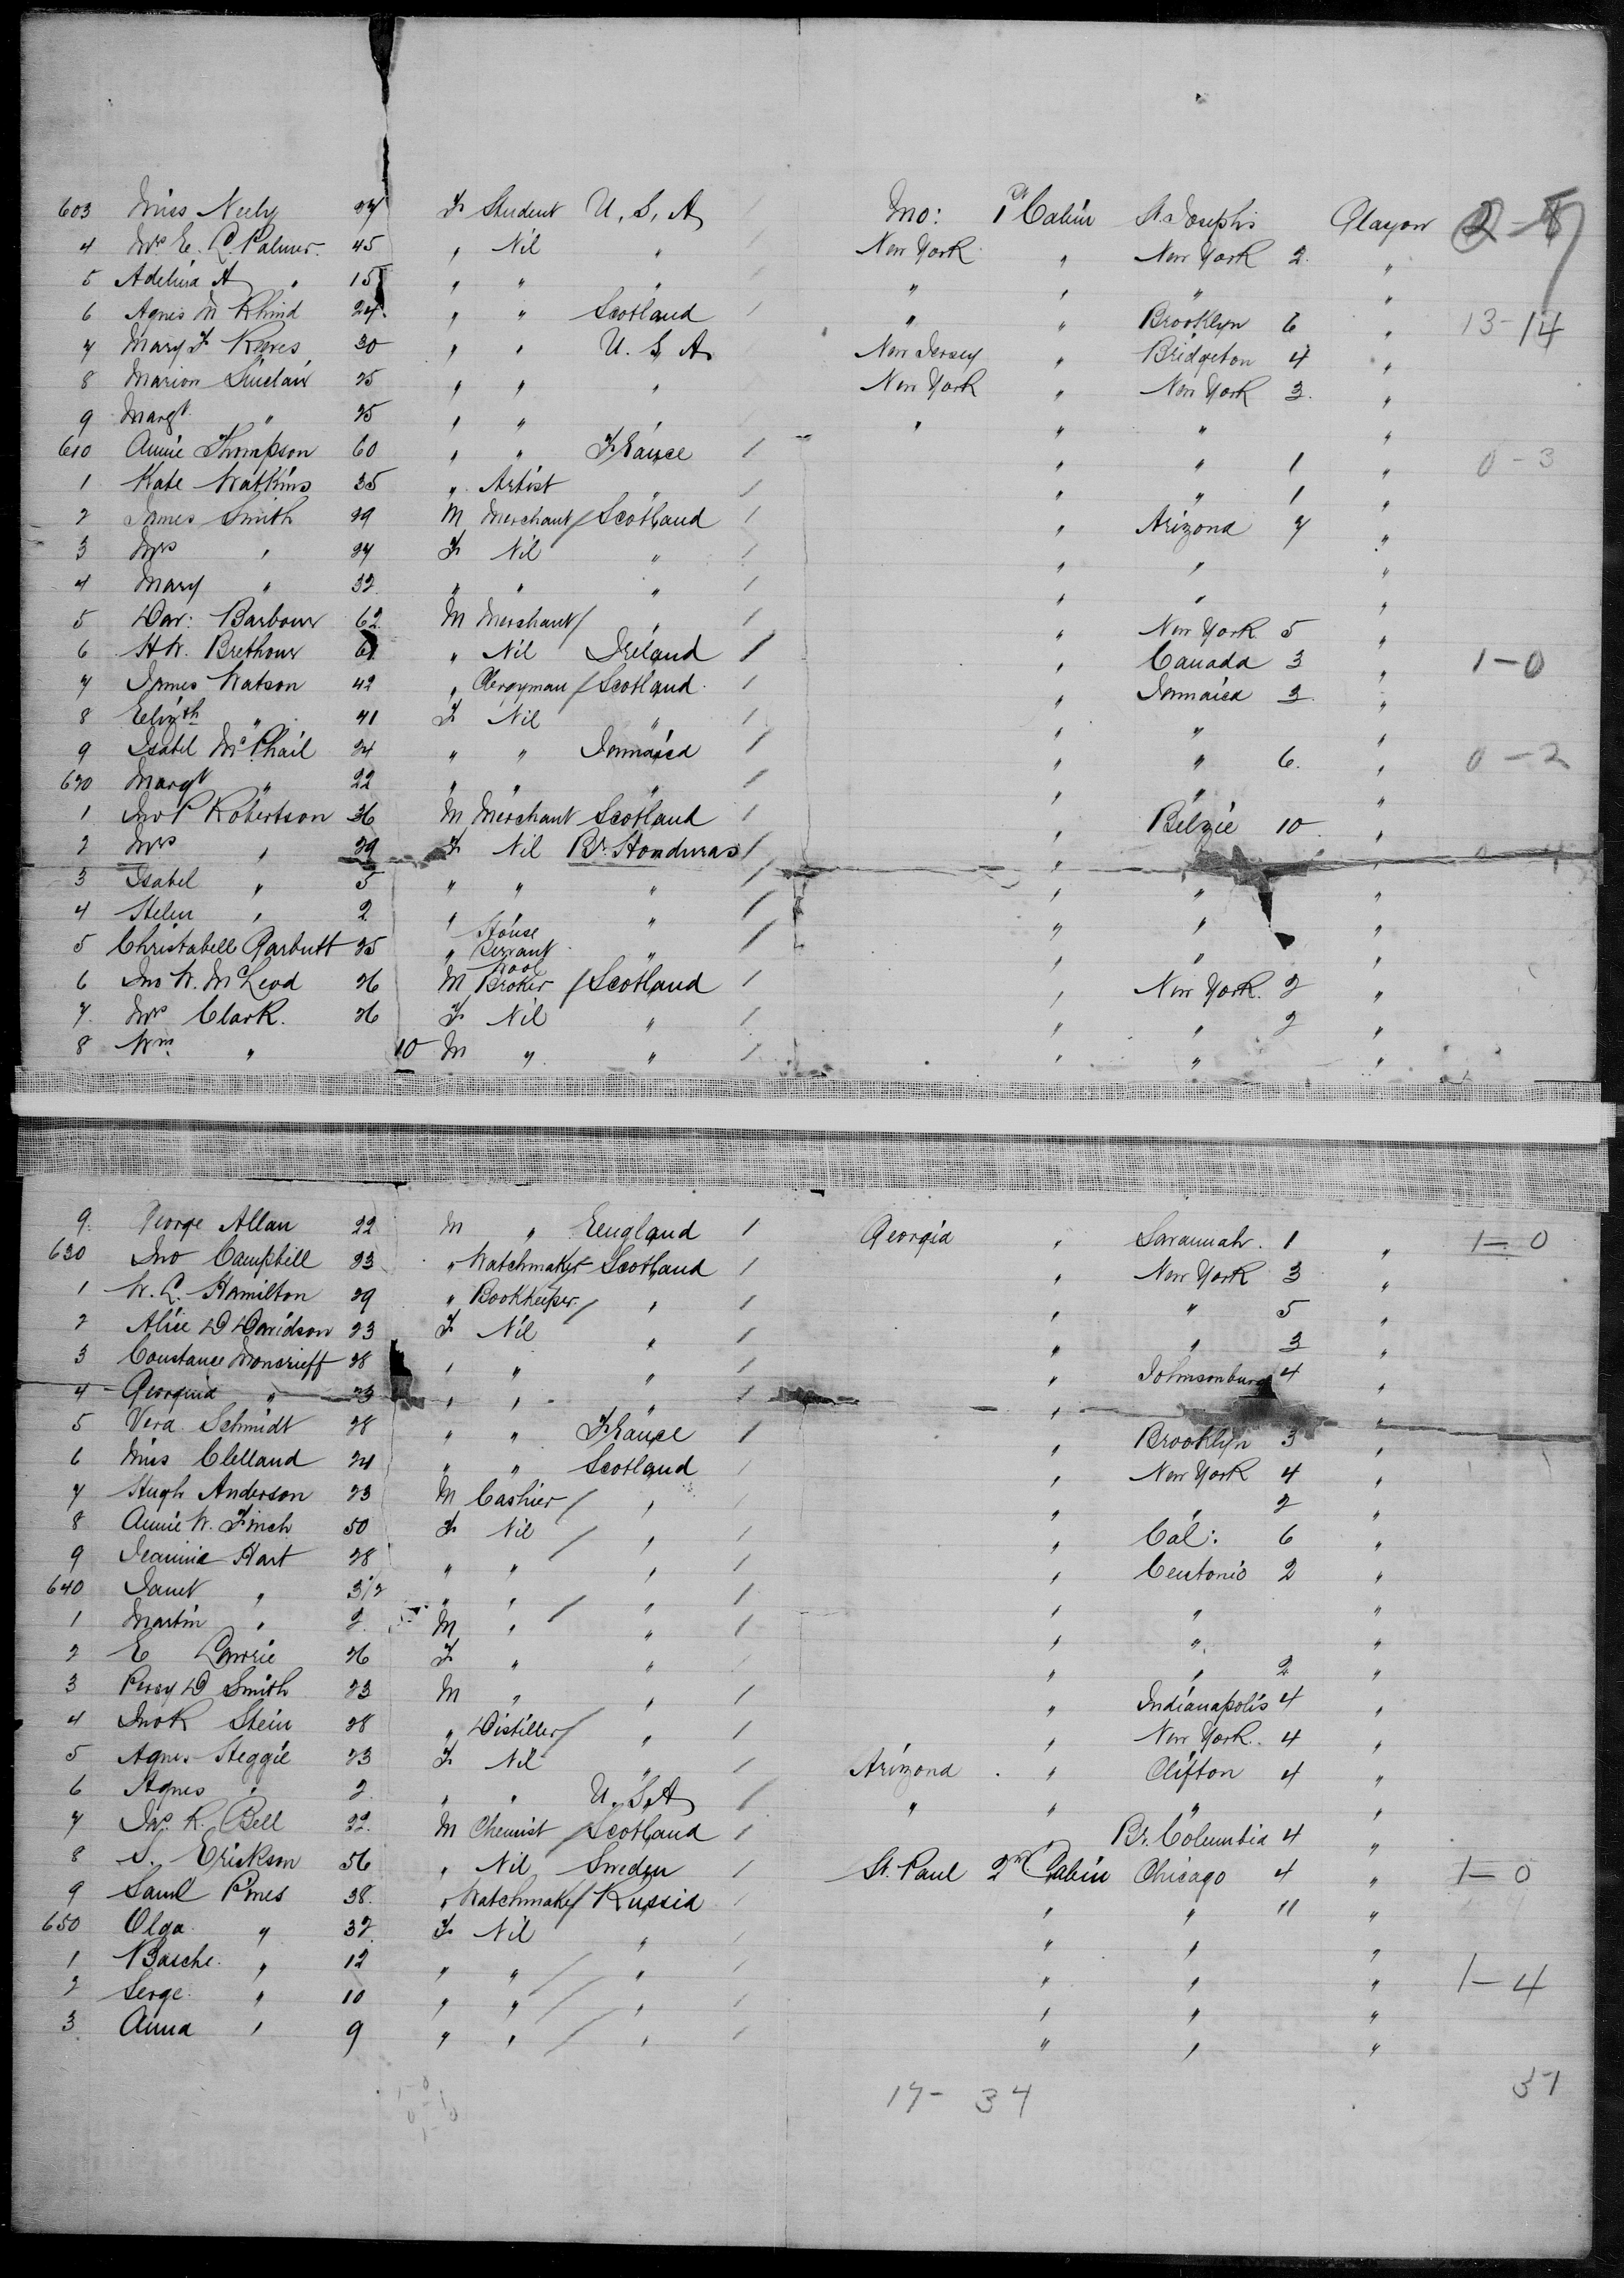 603 Miss Neely 27 F Student U.S.A / Mo: 1st Cabin St Joseph's Glasgow 2-8
4 Mrs E. C. Palmer. 45 " Nil " / New York " New York 2. "
5 Adelina A " 15 " " " / " " " "
6 Agnes W Rhind 24. " " Scotland / " " Brooklyn 6 " 13-14
7 Mary F Reeves 30 " " U.S.A New Jersey " Bridgeton 4 "
8 Marion Sinclair 25 " " " New York " New York 3. "
9 Margt " 25 " " " " " " "
610 Annie Thompson 60 " " France / " " 1 " 0-3
1 Kate Watkins 35 " Artist " / " " 1 "
2 James Smith 29 M Merchant / Scotland / " Arizona 7 "
3 Mrs " 27 F Nil " / " " "
4 Mary " 32. " " " / " " "
5 Dav: Barbour 62. M Merchant / " / " New York 5 "
6 H W. Brethour 61 " Nil Ireland / " Canada 3 " 1-0
7 James Watson 42 " Clergyman / Scotland. / " Jamaica 3 "
8 Elizth " 41 F Nil " / " " "
9 Isabel McPhail 24 " " Jamaica / " " 6. " 0-2
620 Margt " 22 " " " / " " "
1 Jno P Robertson 36 M Merchant Scotland / " Belzie 10 "
2 Mrs " 29 F Nil Br. Honduras / " " "
3 Isabel " 5 " " " / " " "
4 Helen " 2 " " / " " "
5 Christabell Garbutt 25 " House Servant " / " " "
6 Jno W. McLeod 26 M Wool Broker / Scotland / " New York. 2 "
7. Mrs Clark. 26 F Nil " / " " 2 "
8 Wm " 10 M " " / " " "
9. George Allan 22 M " England / Georgia " Savannah. 1 " 1-0
630 Jno Campbell 23 " Watchmaker Scotland / " New York 3 "
1 W. C. Hamilton 29 " Bookkeeper. / " / " " 5 "
2 Alice D Davidson 23 F Nil " / " " 3 "
3 Constance Moncrieff 28 " " " / " Johnsonburg 4 "
4 Georgina " 23 " " " / " "
5 Vera Schmidt 28 " " France / " Brooklyn 3 "
6 Miss Clelland 24 " " Scotland / " New York 4 "
7 Hugh Anderson 23 M Cashier / " / " " 2 "
8 Annie W. Finch 50 F Nil / " / " Cal: 6 "
9 Jeannie Hart 28 " " " / " Centonio 2 "
640 Janet " 3 1/2 " " / " / " " "
1 Martin " 2. M " " / " " "
2 E Lawrie 26 F " " / " " 2 "
3 Percy D Smith 23 M " " / " Indianapolis 4 "
4 Jno R Stein 28 " Distiller / " / " New York. 4 "
5 Agnes Heggie 23 F Nil " / Arizona " Clifton 4 "
6 Agnes " 2. " " U.S.A / " " " "
7 Jas R. Bell 22. M Chemist / Scotland / " Br. Columbia 4 "
8 S. Erickson 56 " Nil Sweden / St. Paul 2nd Cabin Chicago 4 " 1-0
9 Saml Pines 38. " Watchmaker / Russia / " " 11 "
650 Olga " 32. F Nil " / " " "
1 Basche. " 12 " " / " / " " " 1-4
2 Serge " 10 " " / " / " " "
3 Anna " 9 " " / " / " " "
17- 34 37